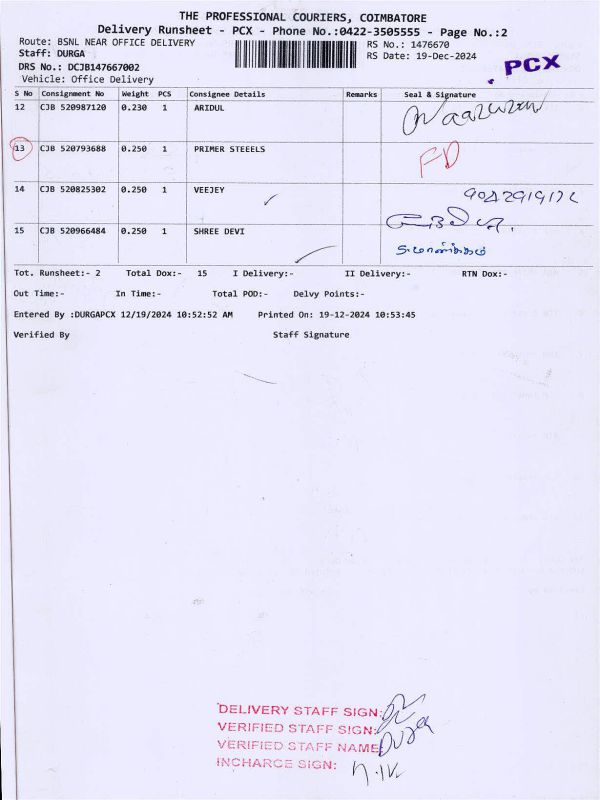 THE PROFESSIONAL COURIERS, COIMBATORE
Delivery Runsheet - PCX - Phone No.:0422-3505555 - Page No.:2
Route: BSNL NEAR OFFICE DELIVERY RS No.: 1476670
Staff: DURGA RS Date: 19-Dec-2024
DRS No.: DCJB147667002
Vehicle: Office Delivery
PCX
S No Consignment No Weight PCS Consignee Details Remarks Seal & Signature
12 CJB 520987120 0.230 1 ARIDUL
13 CJB 520793688 0.250 1 PRIMER STEEELS FD
14 CJB 520825302 0.250 1 VEEJEY
15 CJB 520966484 0.250 1 SHREE DEVI
Tot. Runsheet:- 2 Total Dox:- 15 I Delivery:- II Delivery:- RTN Dox:-
Out Time:- In Time:- Total POD:- Delvy Points:-
Entered By :DURGAPCX 12/19/2024 10:52:52 AM Printed On: 19-12-2024 10:53:45
Verified By Staff Signature
DELIVERY STAFF SIGN:
VERIFIED STAFF SIGN:
VERIFIED STAFF NAME: Durga
INCHARGE SIGN: